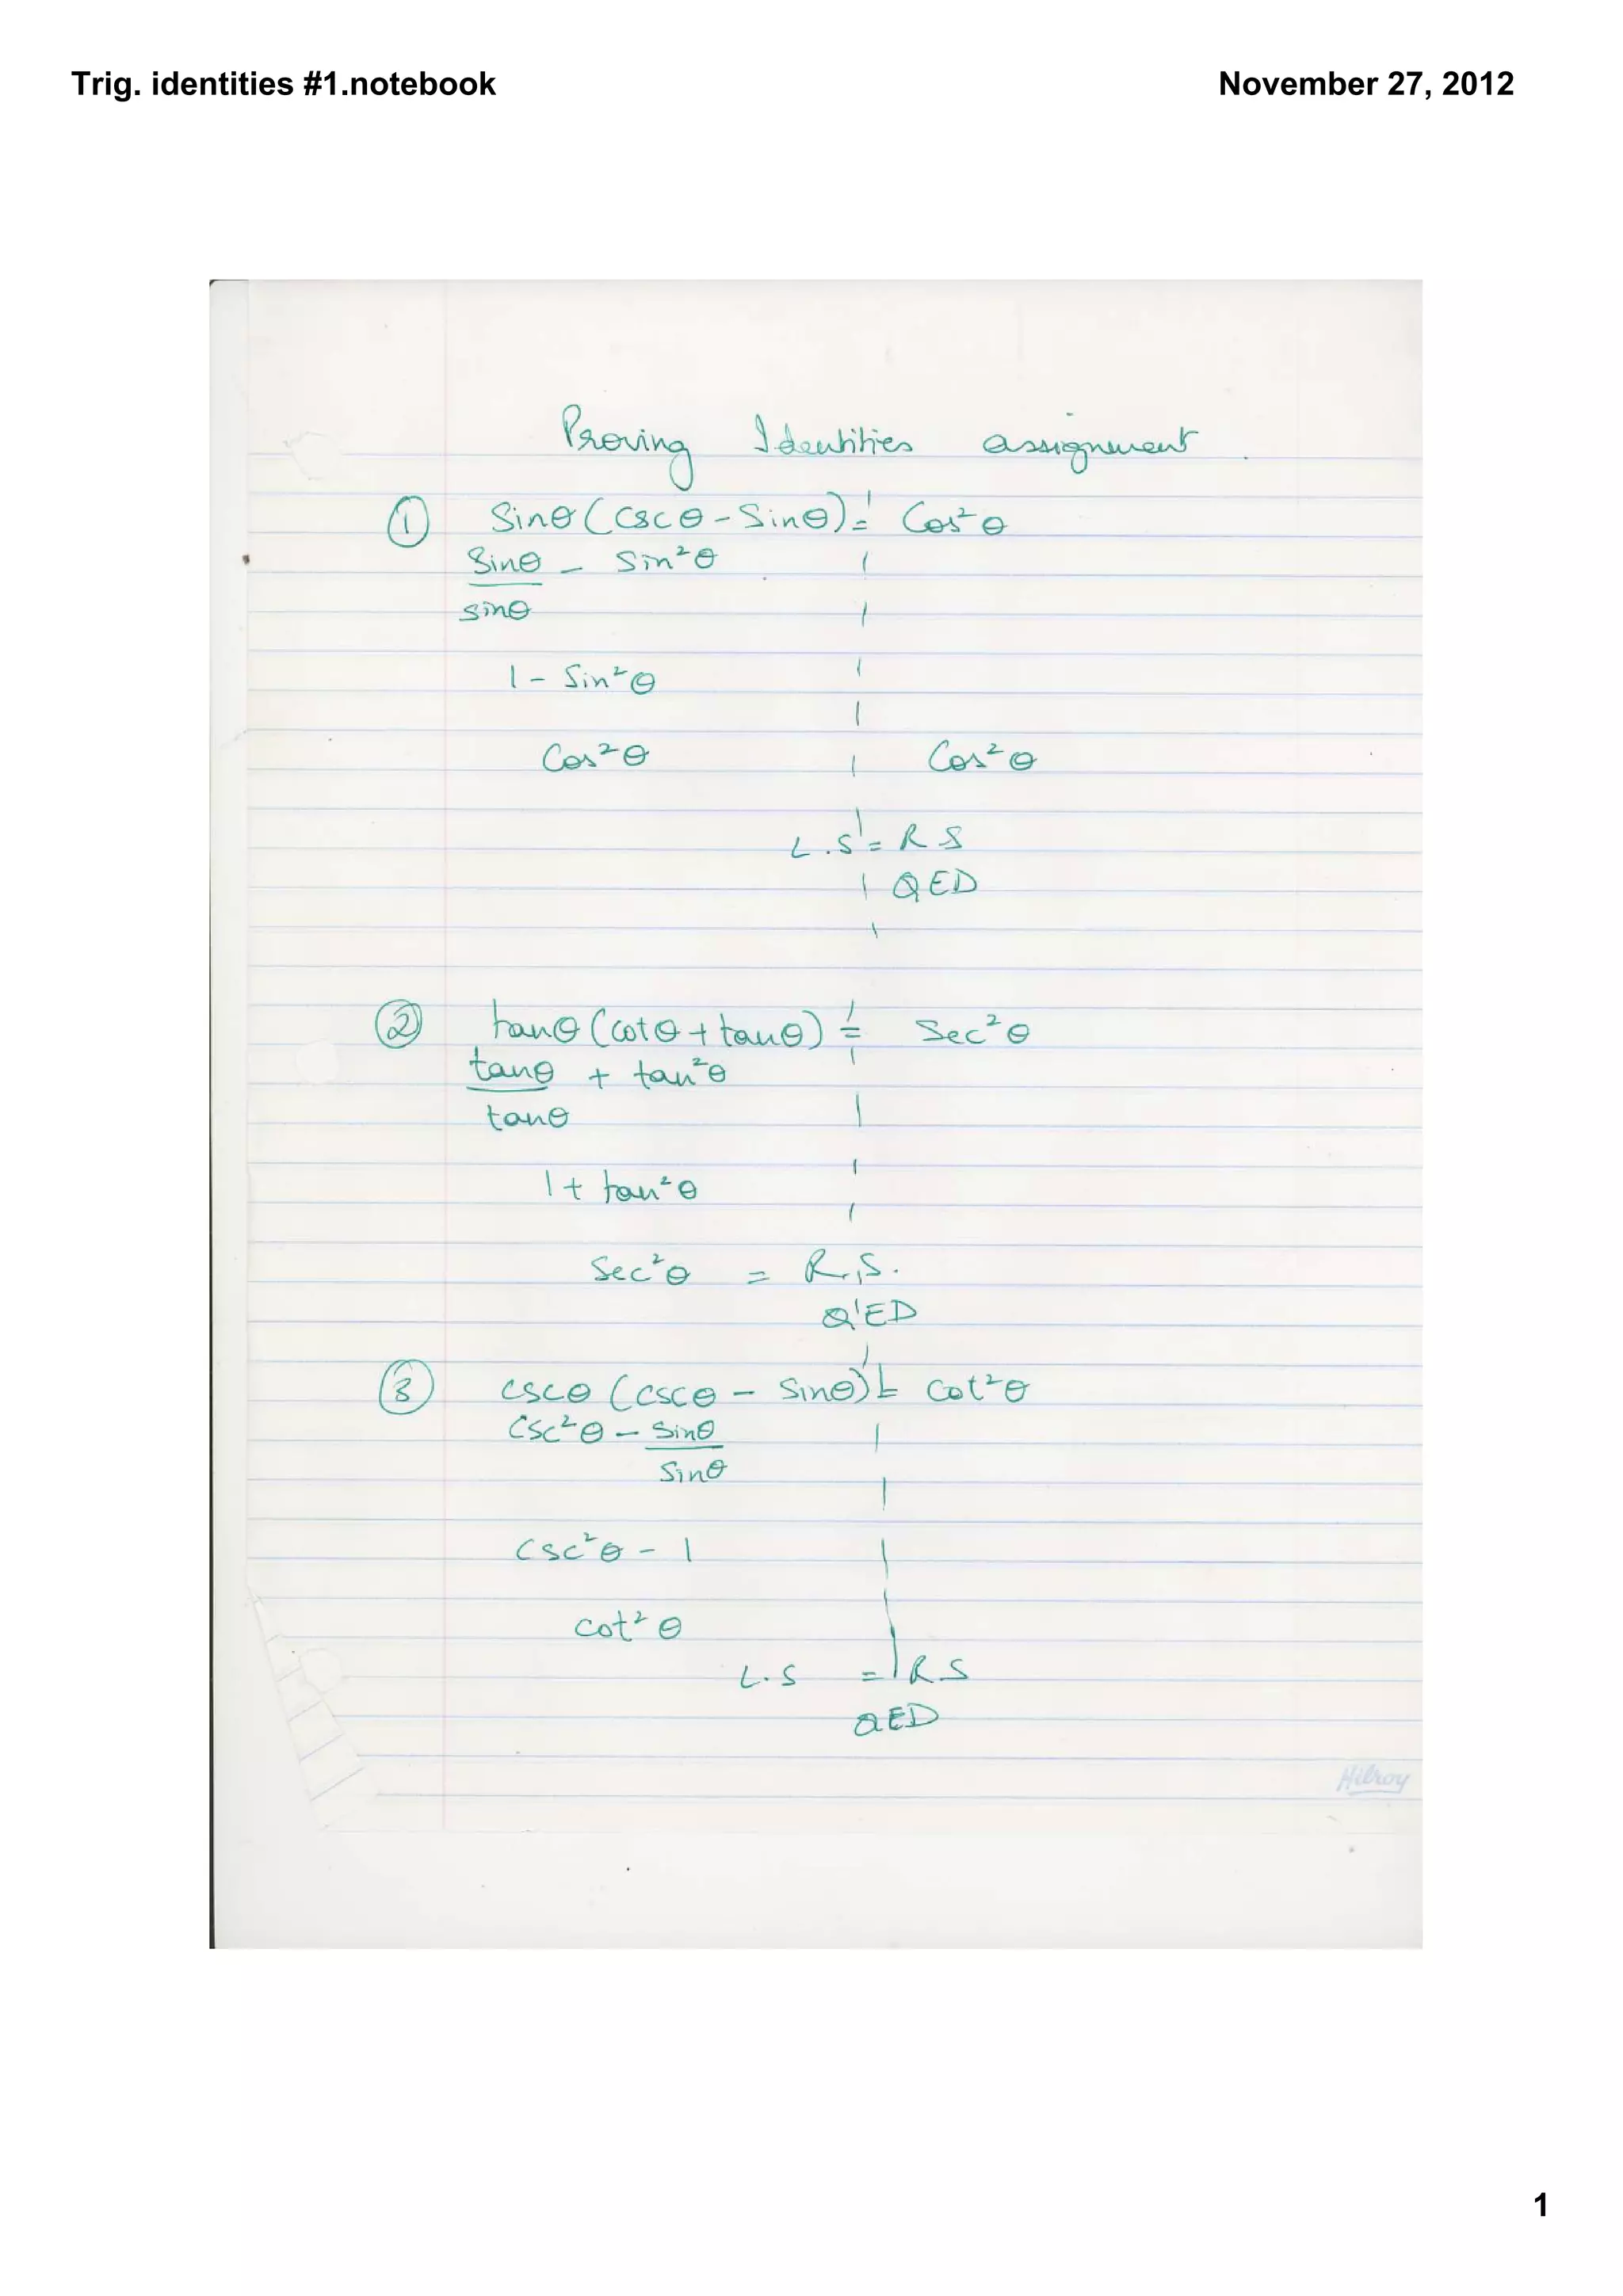 Trig. identities #1.notebook November 27, 2012
Proving Identities assignment.
① Sinθ(cscθ - Sinθ) = Cos²θ
Sinθ - Sin²θ
sinθ
1 - Sin²θ
Cos²θ Cos²θ
L.S = R S
QED
② tanθ(cotθ + tanθ) = Sec²θ
tanθ + tan²θ
tanθ
1 + tan²θ
Sec²θ = R.S.
QED
③ cscθ (cscθ - Sinθ) = cot²θ
Csc²θ - Sinθ
Sinθ
Csc²θ - 1
cot²θ
L.S = R S
QED
Hilroy
1